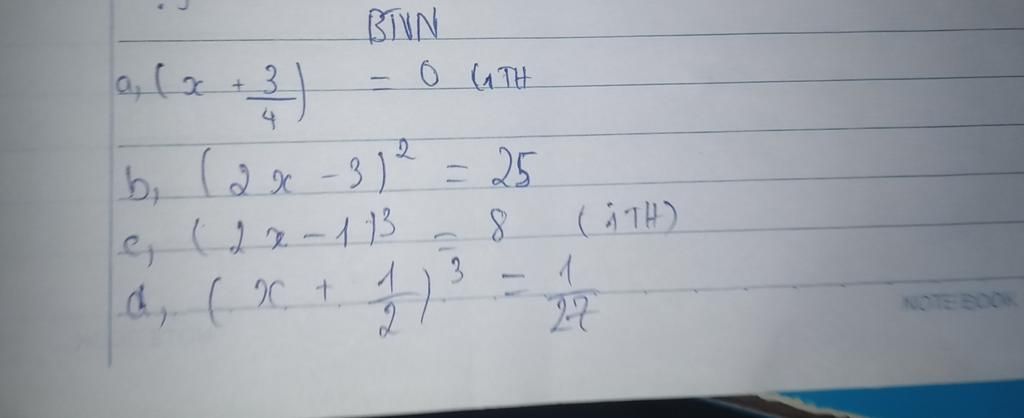 BTVN
a, (x + 3/4) = 0 (1TH
b, (2x - 3)² = 25
c, (2x - 1)³ = 8 (1TH)
d, (x + 1/2)³ = 1/27
NOTEBOOK